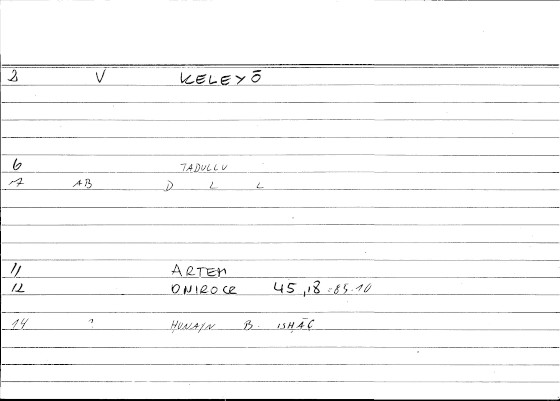 2 V KELEYŌ
6 TADULLU
7 AB D L L
11 ARTEM
12 ONIROCR 45,18 = 85.10
14 ? ḤUNAYN B. ISḤĀC